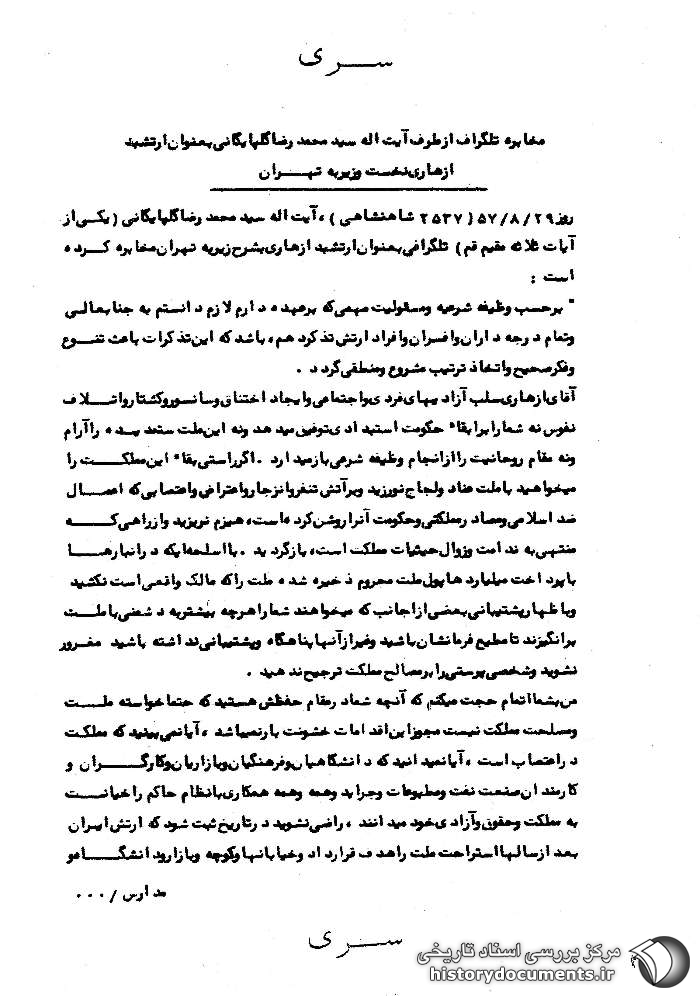 سری
مخابره تلگراف از طرف آیت اله سید محمد رضا گلپایگانی بعنوان ارتشبد
ازهاری نخست وزیر به تهران
روز ۵۷/۸/۲۹ (۲۵۳۷ شاهنشاهی)، آیت اله سید محمد رضا گلپایگانی (یکی از
آیات ثلاثه مقیم قم) تلگرافی بعنوان ارتشبد ازهاری بشرح زیر به تهران مخابره کرده
است :
" برحسب وظیفه شرعیه و مسئولیت مهمی که برعهده دارم لازم دانستم به جنابعالی
و تمام درجه داران و افسران و افراد ارتش تذکر دهم، باشد که این تذکرات باعث تنبوع
و فکر صحیح و اتخاذ ترتیب مشروع و منطقی گردد .
آقای ازهاری سلب آزادیهای فردی و اجتماعی و ایجاد اختناق و سانسور و کشتار و اتلاف
نفوس نه شما را بر ابقاء حکومت استبدادی توفیق میدهد و نه این ملت ستمدیده را آرام
و نه مقام روحانیت را از انجام وظیفه شرعی باز میدارد . اگر راستی بقاء این مملکت را
میخواهید با ملت عناد و لجاج نورزید و بر آتش تنفر و انزجار و اعتراض و اعتصابی که اعمال
ضد اسلامی و مصادر مملکتی و حکومت آنرا روشن کرده است، هیزم نریزید و از راهی که
منتهی به ندامت و زوال حیثیات مملکت است، بازگردید . با اسلحه ایکه در انبارها
با پرداخت میلیاردها پول ملت محروم ذخیره شده ملت را که مالک واقعی است نکشید
و با ظهار پشتیبانی بعضی از اجانب که میخواهند شما را هرچه بیشتر به دشمنی با ملت
برانگیزند تا مطیع فرمانشان باشید و غیر از آنها پناهگاه و پشتیبانی نداشته باشید مغرور
نشوید و شخص پرستی را بر مصالح مملکت ترجیح ندهید .
من بشما اتمام حجت میکنم که آنچه شما در مقام حفظش هستید که حتما خواسته ملت
و مصلحت مملکت نیست مجوز این اقدامات خشونت بار نمیباشد، آیا نمی بینید که مملکت
در اعتصاب است، آیا نمیدانید که دانشگاهیان و فرهنگیان و بازاریان و کارگران و
کارمندان صنعت نفت و مطبوعات و جراید و همه و همه همکاری با نظام حاکم را خیانت
به مملکت و حقوق و آزادی خود میدانند، راضی نشوید در تاریخ ثبت شود که ارتش ایران
بعد از سالها استراحت ملت را هدف قرار داد و خیابانها و کوچه و بازار و دانشگاه و
مدارس /۰۰۰
سری
مرکز بررسی اسناد تاریخی
historydocuments.ir